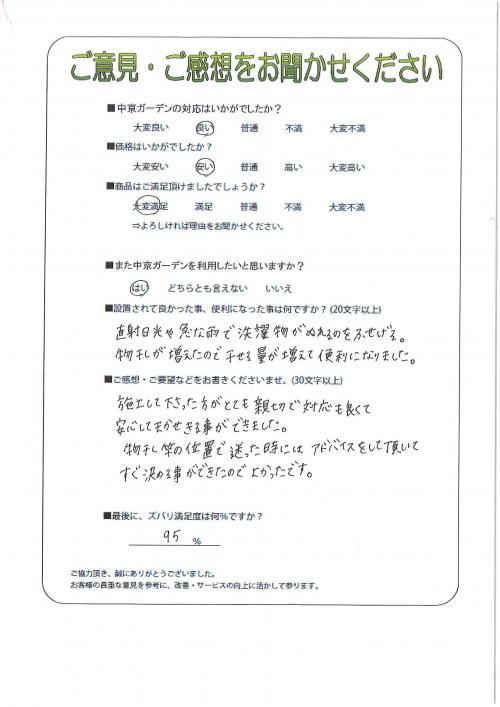 ご意見・ご感想をお聞かせください
■中京ガーデンの対応はいかがでしたか？
大変良い 良い 普通 不満 大変不満
■価格はいかがでしたか？
大変安い 安い 普通 高い 大変高い
■商品はご満足頂けましたでしょうか？
大変満足 満足 普通 不満 大変不満
⇒よろしければ理由をお聞かせください。
■また中京ガーデンを利用したいと思いますか？
はい どちらとも言えない いいえ
■設置されて良かった事、便利になった事は何ですか？(20文字以上)
直射日光や急な雨で洗濯物がぬれるのをふせげる。
物干しが増えたので干せる量が増えて便利になりました。
■ご感想・ご要望などをお書きくださいませ。(30文字以上)
施工して下さった方がとても親切で対応も良くて
安心してまかせきる事ができました。
物干し等の位置で迷った時にはアドバイスをして頂いて
すぐ決める事ができたのでよかったです。
■最後に、ズバリ満足度は何%ですか？
95 %
ご協力頂き、誠にありがとうございました。
お客様の貴重な意見を参考に、改善・サービスの向上に活かして参ります。